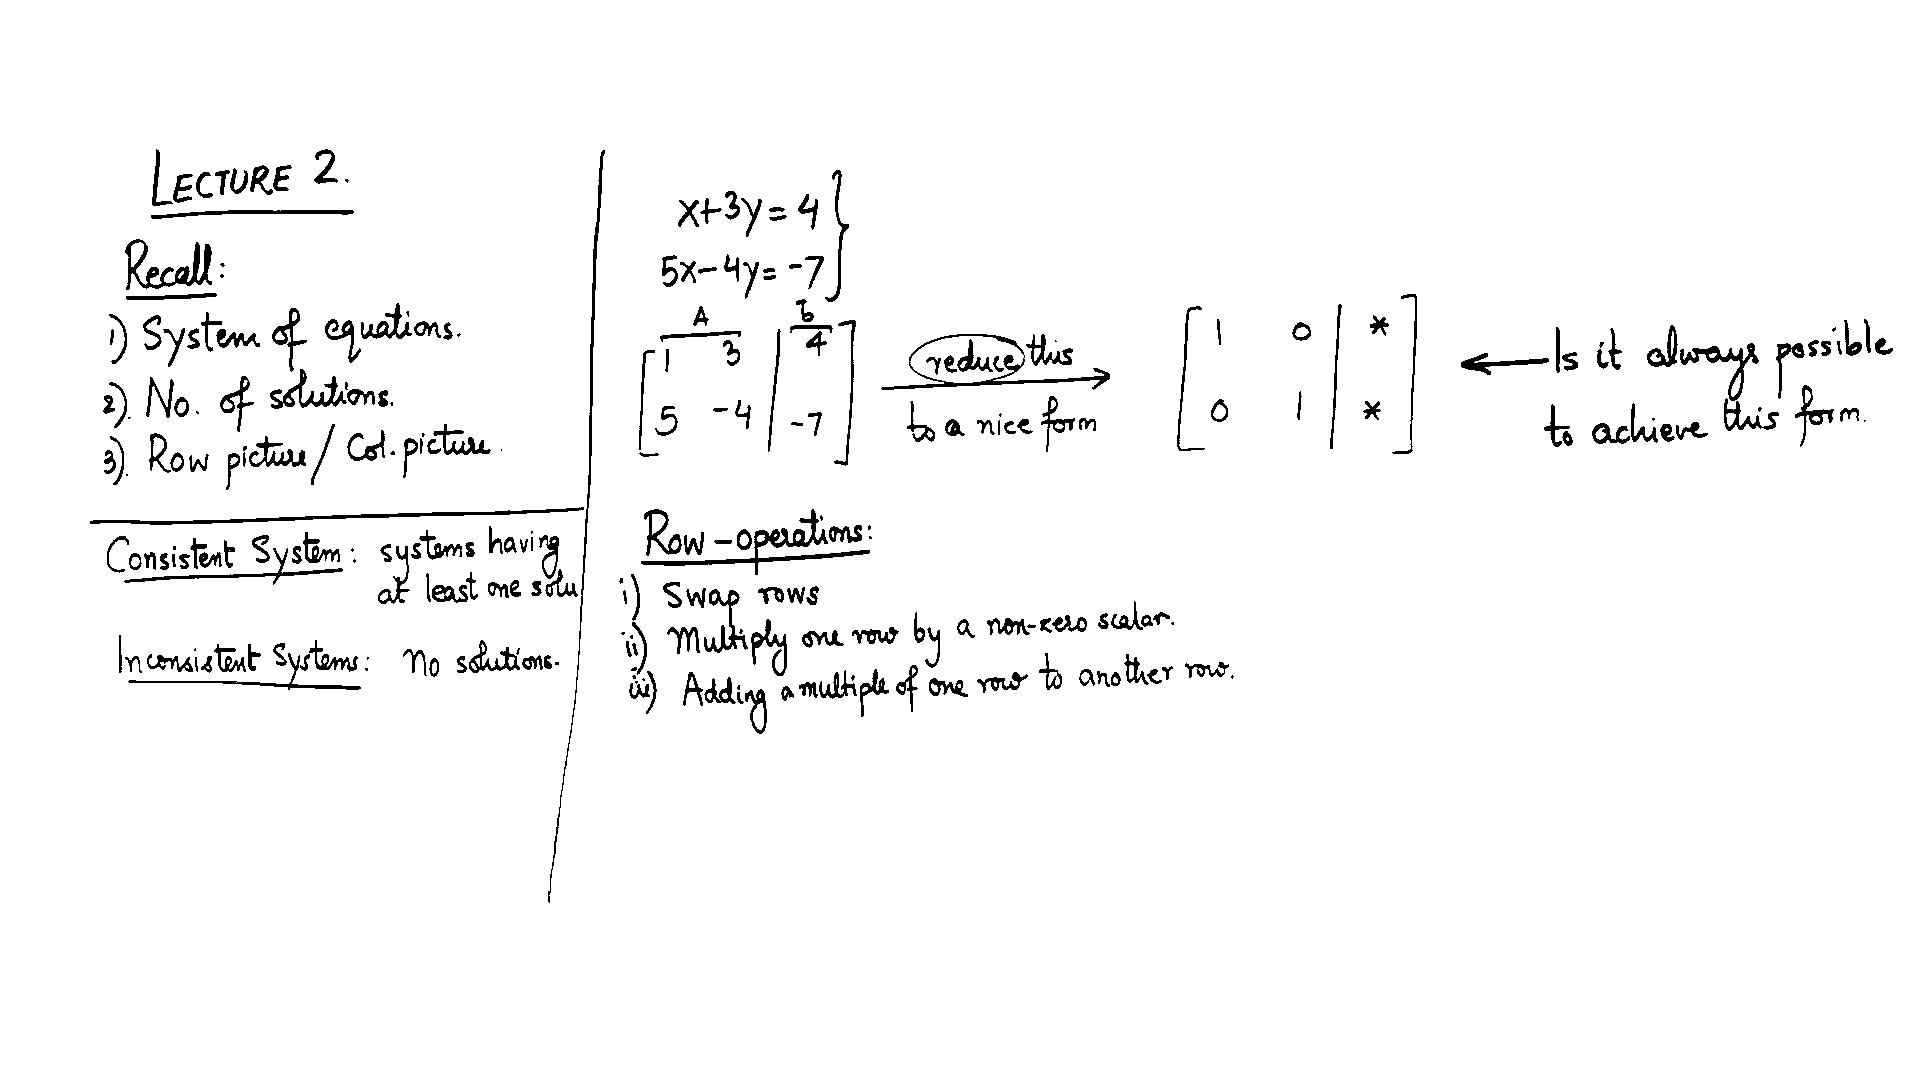 LECTURE 2.
Recall:
1) System of equations.
2). No. of solutions.
3). Row picture / Col. picture.
Consistent System: systems having
at least one solu
Inconsistent Systems: No solutions.
x+3y = 4
5x-4y = -7
A b
1 3 4
5 -4 -7
reduce this
to a nice form
1 0 *
0 1 *
Is it always possible
to achieve this form.
Row-operations:
i) Swap rows
ii) Multiply one row by a non-zero scalar.
iii) Adding a multiple of one row to another row.